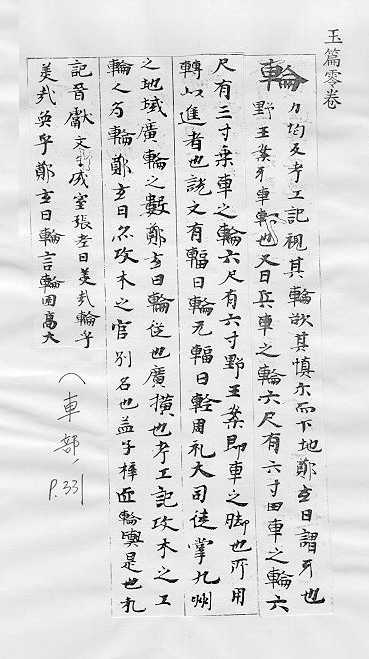 玉篇零卷
輪 力均反考工記視其輪欲其慎尒而下地鄭玄曰謂牙也
野王案牙車輞也又曰兵車之輪六尺有六寸田車之輪六
尺有三寸乗車之輪六尺有六寸野王案即車之脚也所用
轉以進者也說文有輻曰輪无輻曰輇周礼大司徒掌九州
之地域廣輪之數鄭玄曰輪從也廣撗也考工記攻木之工
輪人为輪鄭玄曰尒攻木之官別名也孟子梓近輪輿是也礼
記晉獻文子成室張老曰美㢤輪乎
美㢤奐乎鄭玄曰輪言輪囷高大
(車部,
P.331